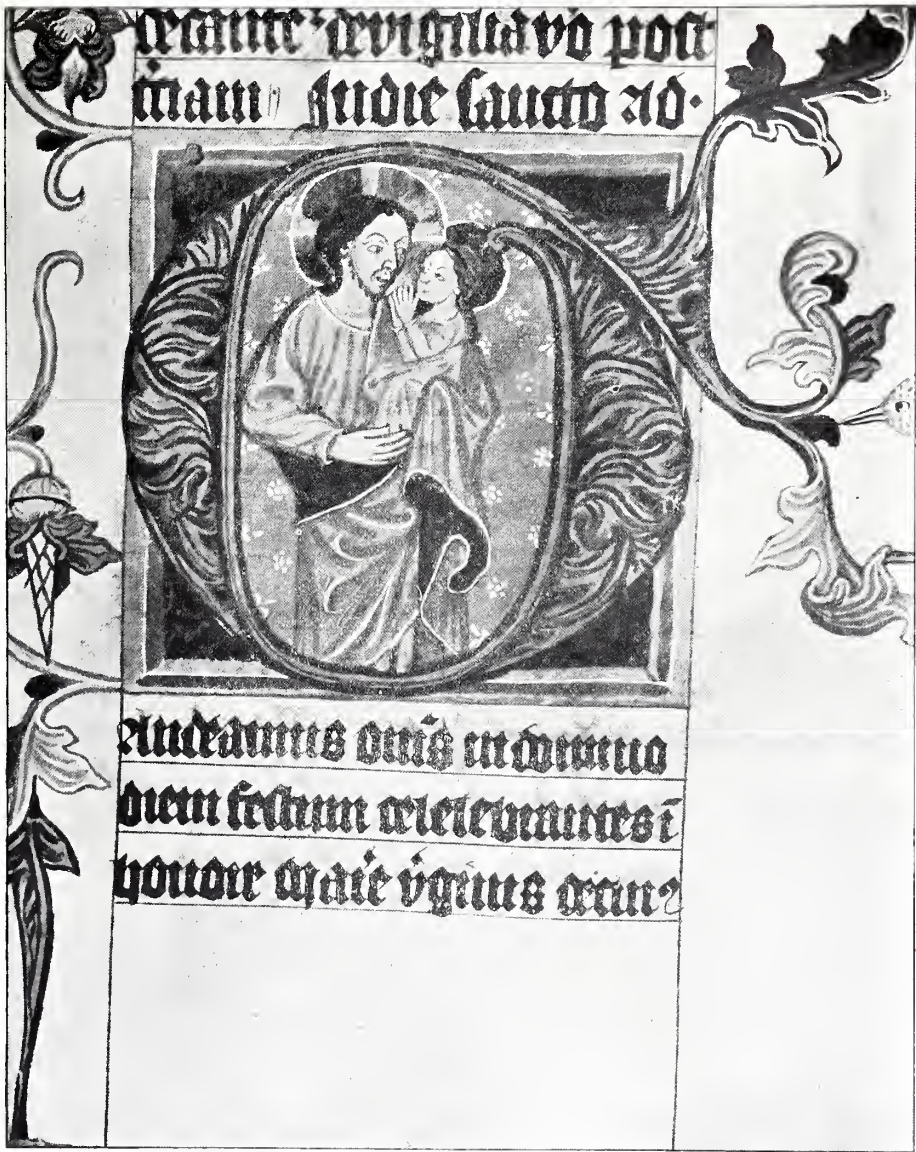 de vigilia vo post
In die sancto ad·
Audeamus om̄s in domino
diem festum celelebrantes ī
honore Maīe v̄ginis de cuiꝰ